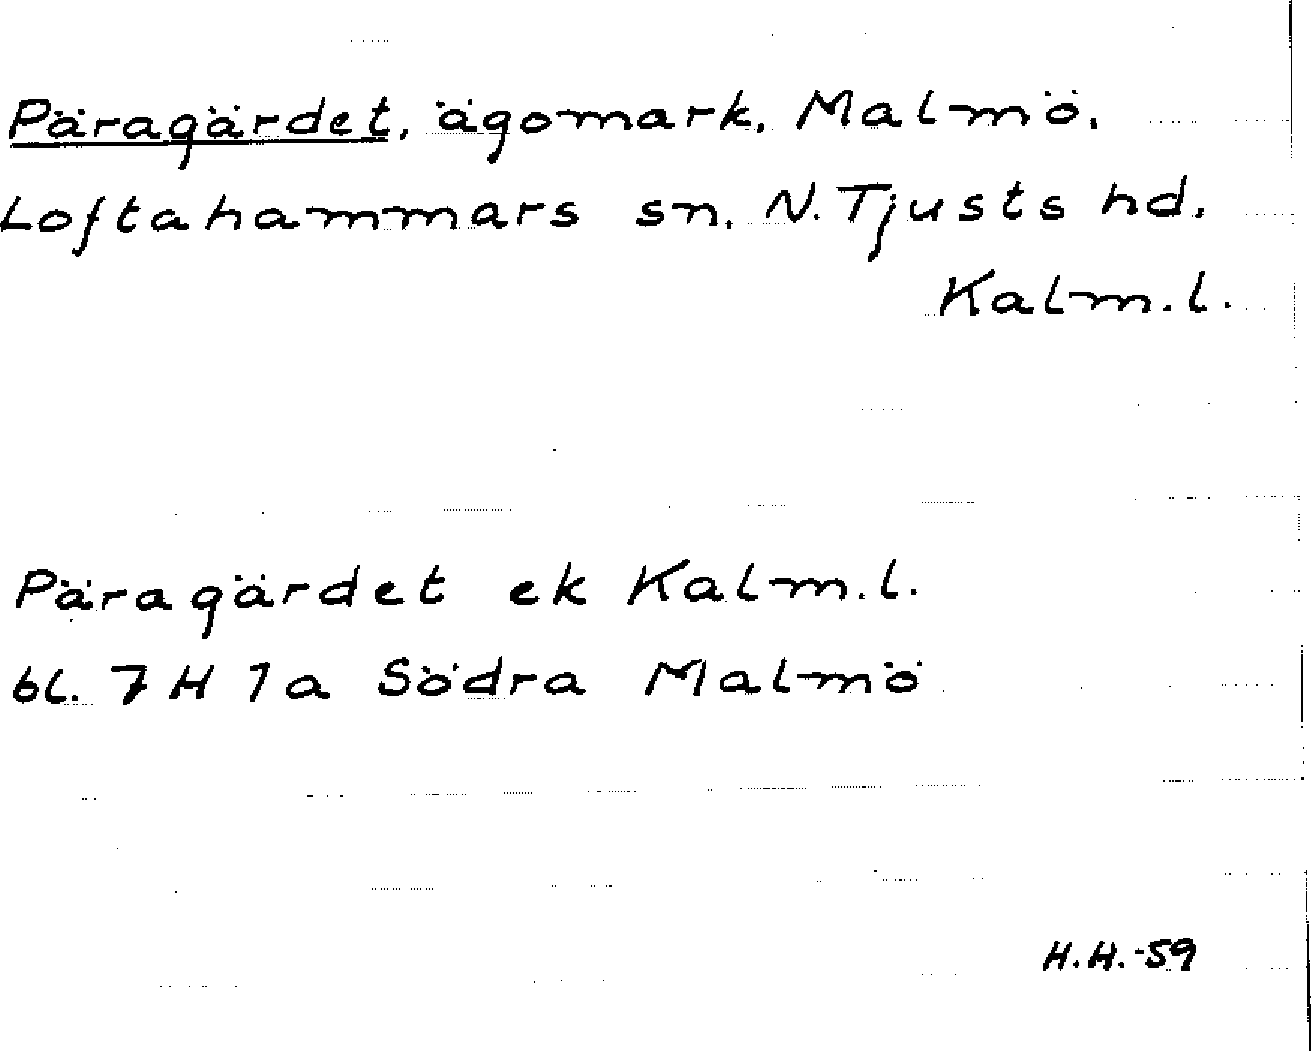 Päragärdet, ägomark, Malmö,
Loftahammars sn, N. Tjusts hd,
Kalm.l.
Päragärdet ek Kalm.l.
bl. 7H 1a Södra Malmö
H.H.-59